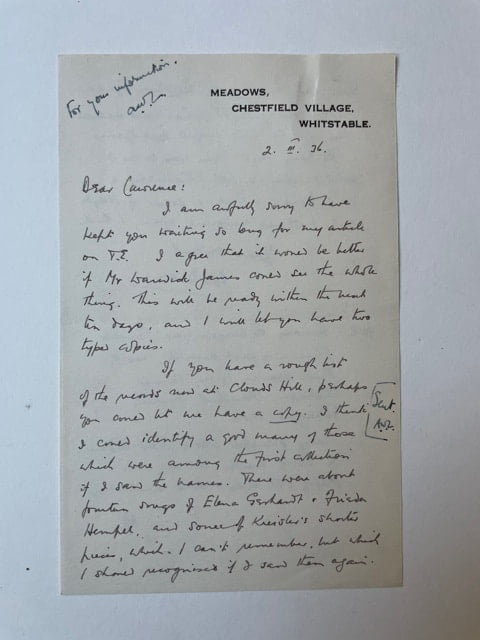 For your information.
A.W.L.
MEADOWS,
CHESTFIELD VILLAGE,
WHITSTABLE.
2. III. 36.
Dear Lawrence:
I am awfully sorry to have
kept you waiting so long for my article
on T.E. I agree that it would be better
if Mr Warwick James could see the whole
thing. This will be ready within the next
ten days, and I will let you have two
typed copies.
If you have a rough list
of the records now at Clouds Hill, perhaps
you could let me have a copy. I think
Sent.
A.W.L.
I could identify a good many of those
which were among the first collection
if I saw the names. There were about
fourteen songs of Elena Gerhardt & Frieda
Hempel, and some of Kreisler's shorter
pieces, which I can't remember, but which
I should recognise if I saw them again.